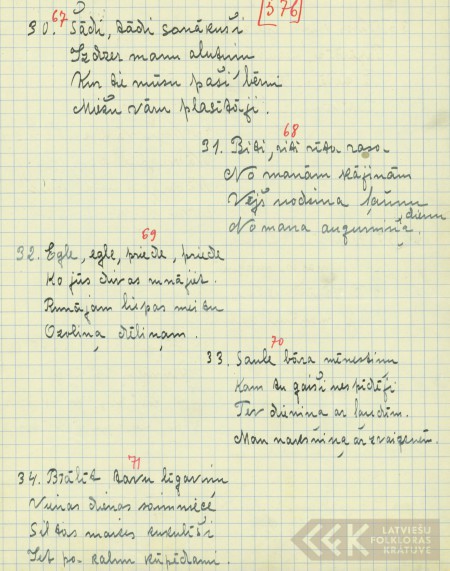 [376]
67
30. Šādi, tādi sanākuši
Izdzer manu alutiņu
Kur tie mūsu paši bērni
Miežu vāru plasītāji.
68
31. Biti, riti rīta rasa
No manām kājiņām
Vējš nodzina ļaunu
dienu
No mana augumiņa.
69
32. Egle, egle, priede, priede
Ko jūs divas runājat.
Runājam liepas meitu
Ozoliņa dēliņam.
70
33. Saule bāra mēnestiņu
Kam tu gaiši nespīdēji
Tev dieniņa ar ļaudīm.
Man naksniņa ar zvaigznēm.
71
34. Brālīt tavu līgaviņu
Vienas dienas saimniece
Siltas maizes kukulīši
Iet pa kalnu kūpēdami.
LATVIEŠU
FOLKLORAS
KRĀTUVE